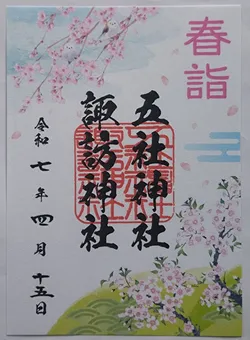 春詣
五社神社
諏訪神社
令和七年四月十五日